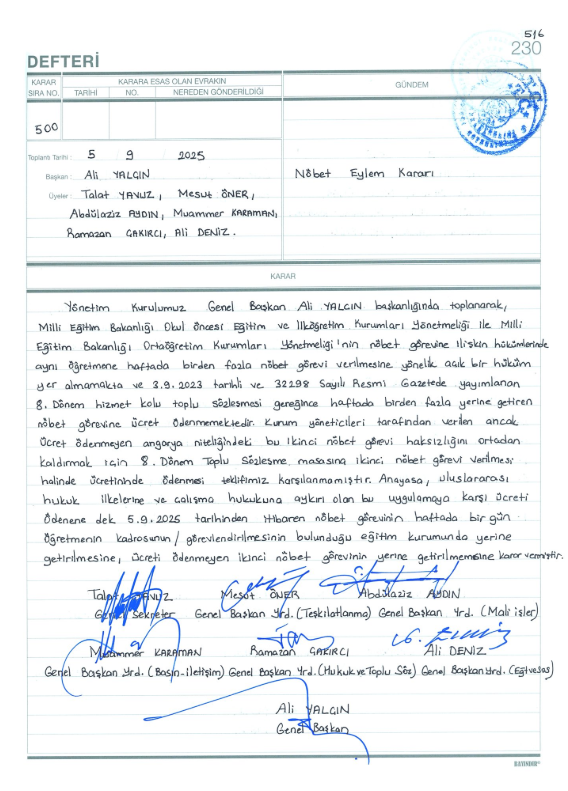 516
230
DEFTERİ
KARAR SIRA NO.
KARARA ESAS OLAN EVRAKIN
TARİHİ NO. NEREDEN GÖNDERİLDİĞİ
GÜNDEM
500
Toplantı Tarihi : 5 9 2025
Başkan : Ali YALÇIN
Üyeler : Talat YAVUZ, Mesut ÖNER,
Abdülaziz AYDIN, Muammer KARAMAN,
Ramazan ÇAKIRCI, Ali DENİZ.
Nöbet Eylem Kararı
KARAR
Yönetim Kurulumuz Genel Başkan Ali YALÇIN başkanlığında toplanarak,
Milli Eğitim Bakanlığı Okul öncesi Eğitim ve İlköğretim Kurumları Yönetmeliği ile Milli
Eğitim Bakanlığı Ortaöğretim Kurumları Yönetmeliği'nin nöbet görevine ilişkin hükümlerinde
aynı öğretmene haftada birden fazla nöbet görevi verilmesine yönelik açık bir hüküm
yer almamakta ve 3.9.2023 tarihli ve 32298 Sayılı Resmi Gazetede yayımlanan
8. Dönem hizmet kolu toplu sözleşmesi gereğince haftada birden fazla yerine getiren
nöbet görevine ücret ödenmemektedir. Kurum yöneticileri tarafından verilen ancak
ücret ödenmeyen angarya niteliğindeki bu ikinci nöbet görevi haksızlığını ortadan
kaldırmak için 8. Dönem Toplu Sözleşme masasına ikinci nöbet görevi verilmesi
halinde ücretinhde ödenmesi teklifimiz karşılanmamıştır. Anayasa, uluslararası
hukuk ilkelerine ve çalışma hukukuna aykırı olan bu uygulamaya karşı ücreti
ödenene dek 5.9.2025 tarihinden itibaren nöbet görevinin haftada bir gün
öğretmenin kadrosunun / görevlendirilmesinin bulunduğu eğitim kurumunda yerine
getirilmesine, ücreti ödenmeyen ikinci nöbet görevinin yerine getirilmemesine karar vermiştir.
Talat YAVUZ Mesut ÖNER Abdülaziz AYDIN
Genel Sekreter Genel Başkan Yrd. (Teşkilatlanma) Genel Başkan Yrd. (Mali işler)
Muammer KARAMAN Ramazan ÇAKIRCI Ali DENİZ
Genel Başkan Yrd. (Basın-iletişim) Genel Başkan Yrd. (Hukuk ve Toplu Söz) Genel Başkan Yrd. (Eğt ve Sos)
Ali YALÇIN
Genel Başkan